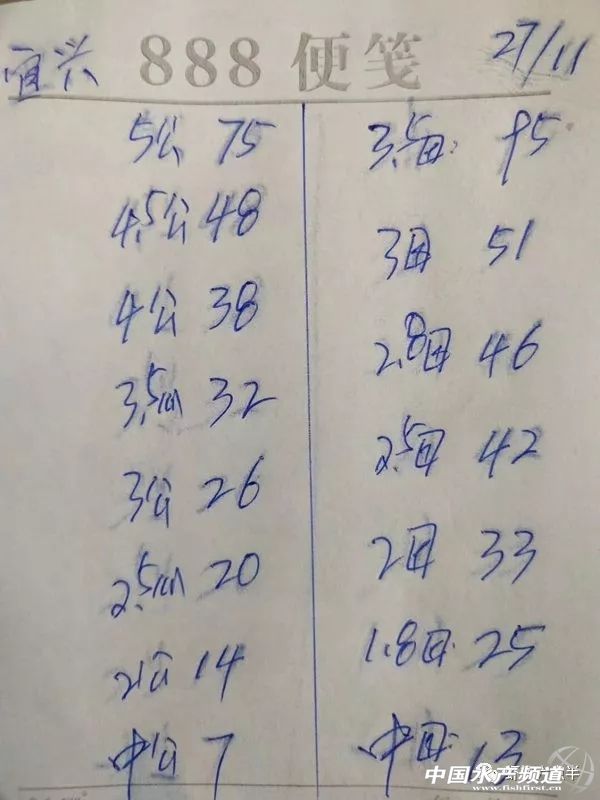 宜兴 888 便笺 27/11
5公 75
4.5公 48
4公 38
3.5公 32
3公 26
2.5公 20
2公 14
中公 7
3.5母 95
3母 51
2.8母 46
2.5母 42
2母 33
1.8母 25
中母 13
中国水产频道
www.fishfirst.cn